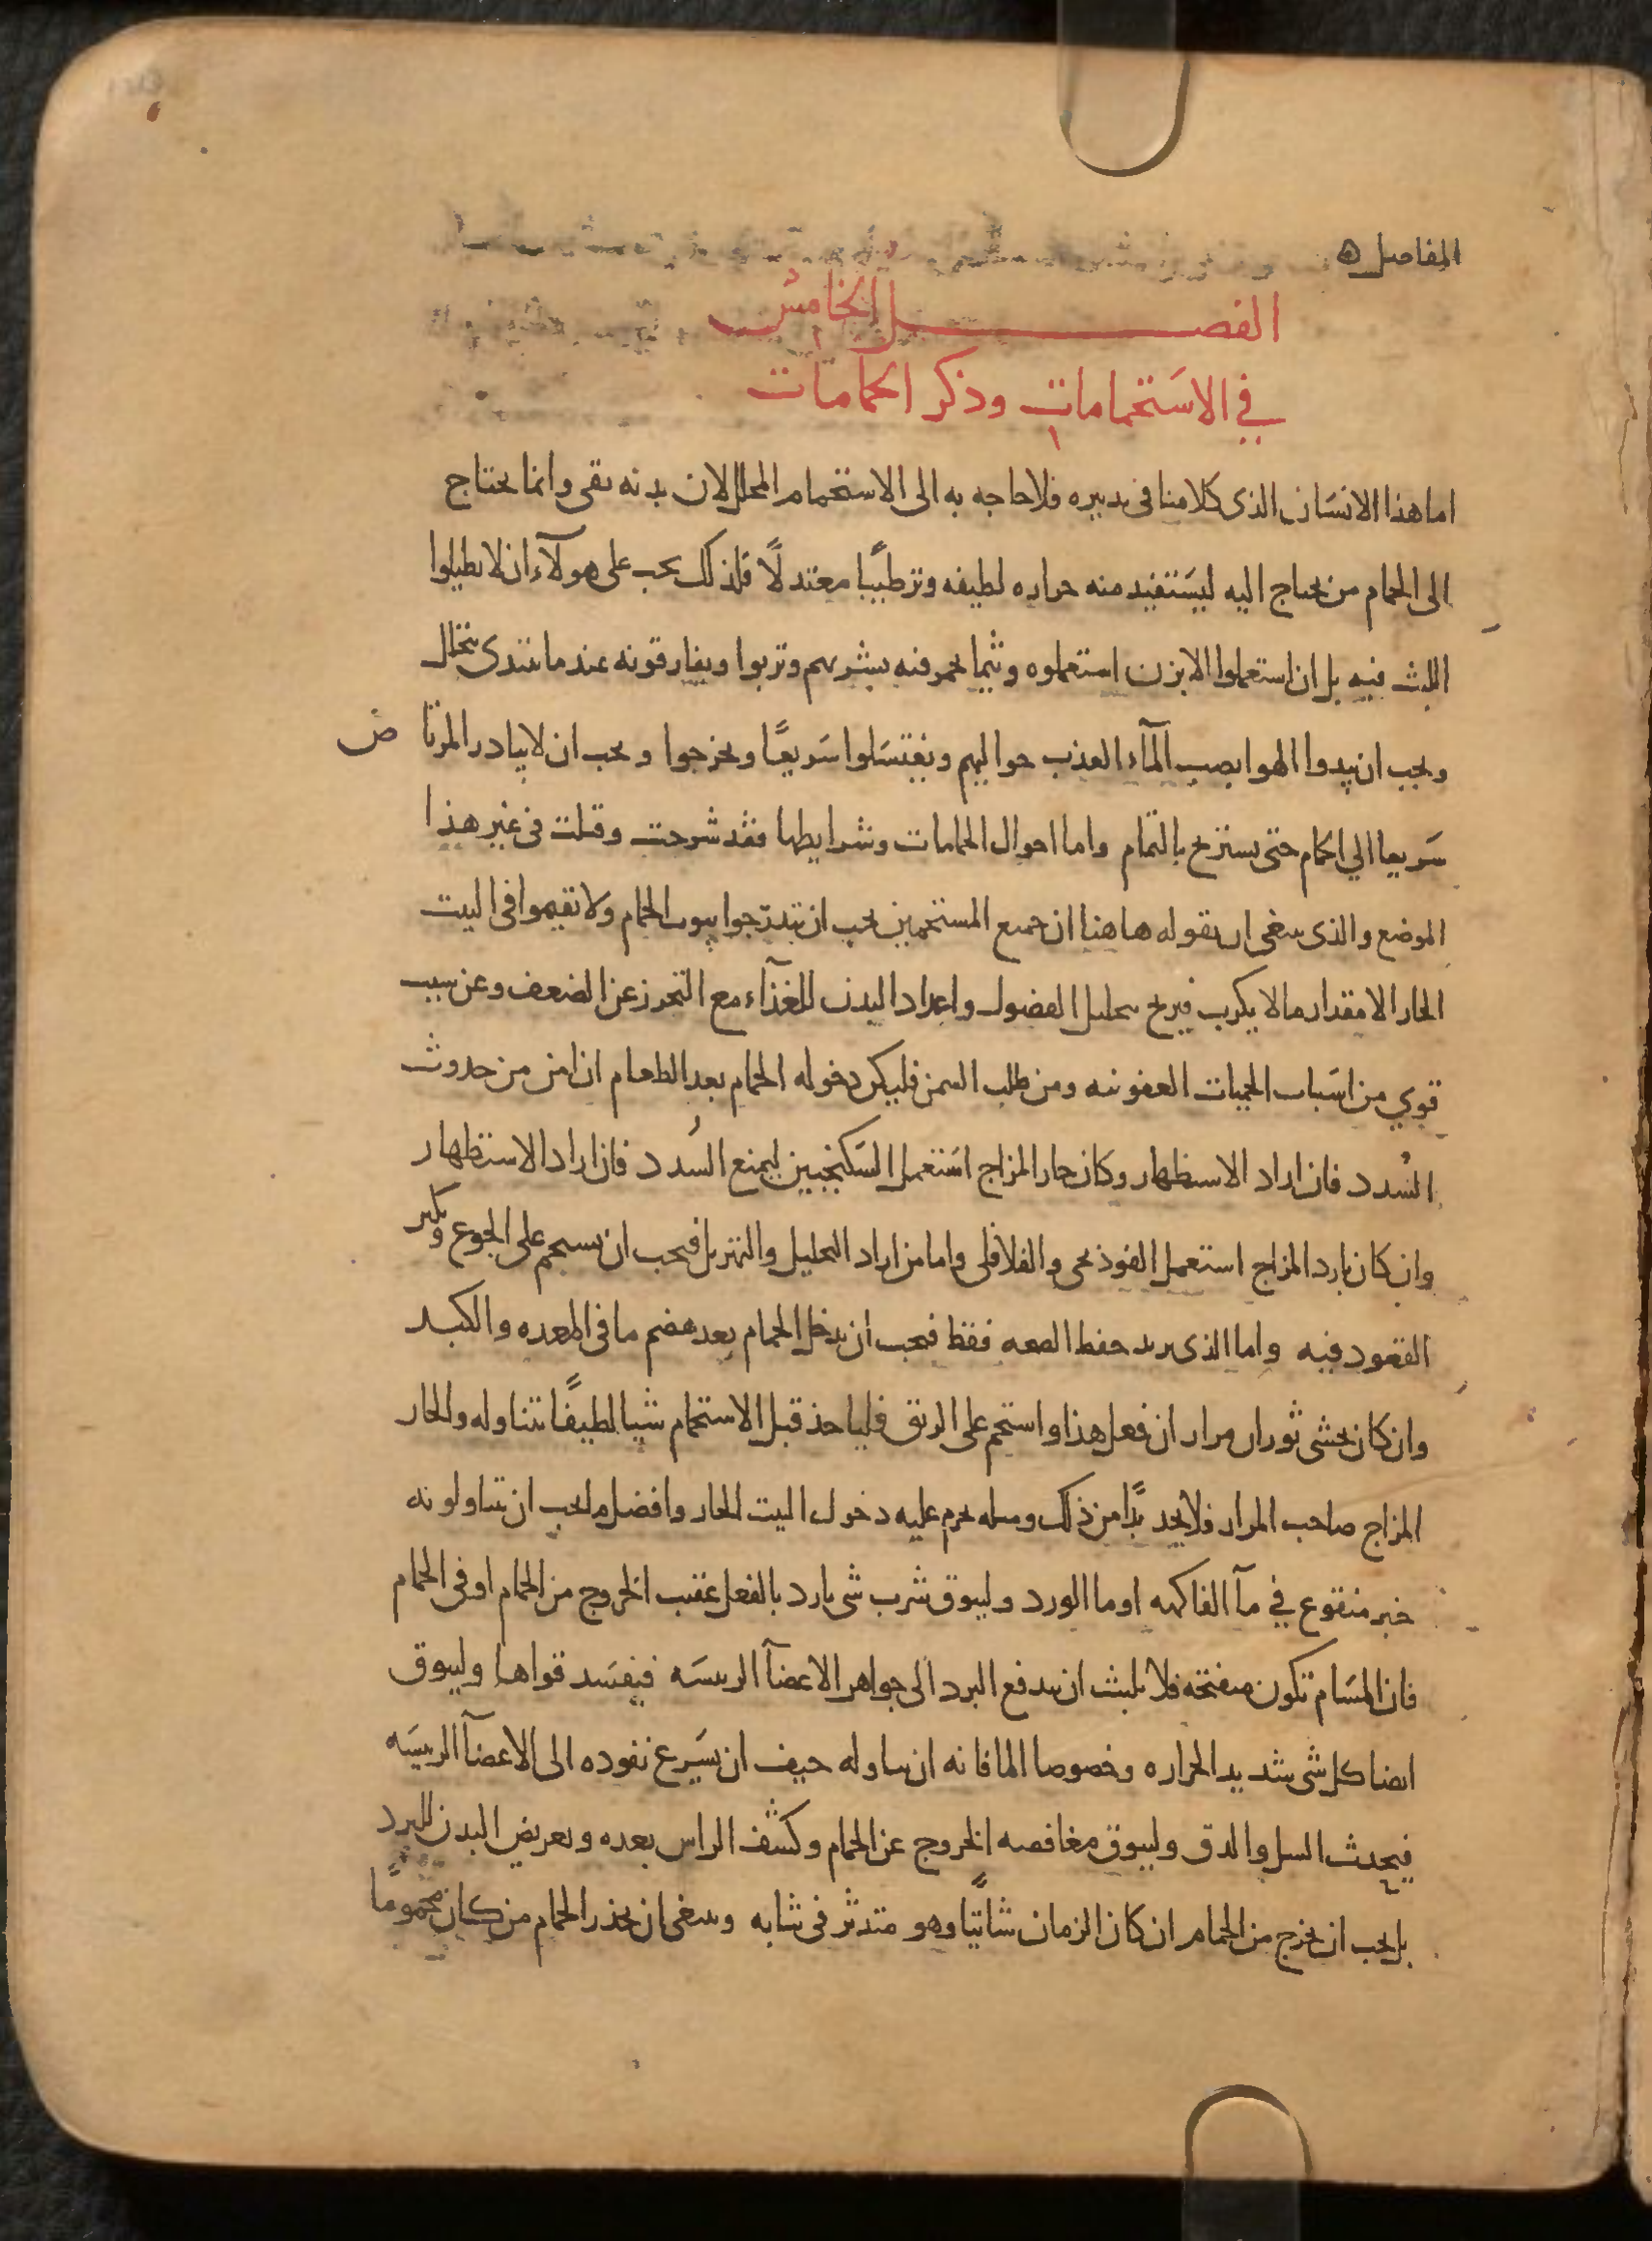 المفاصل ه
الفصل الخامس
في الاستحمامات وذكر الحمامات
اما هذا الانسان الذى كلامنا فى تدبيره فلا حاجه به الى الاستحمام المحلل لان بدنه نقى وانما يحتاج
الى الحمام من يحتاج اليه ليستفيد منه حراره لطيفه وترطيبًا معتدلًا فلذلك يجب على هولآء ان لا يطيلوا
اللبث فيه بل ان استعملوا الابزن استعملوه وثيما يحمر فيه بشرتهم وتربوا ويفارقونه عندما تبتدى تتحلل
ويجب ان يندوا الهوا بصب المآء العذب حواليهم ويغتسلوا سَريعًا ويخرجوا ويجب ان لا يبادر المرتاض
سَريعا الي الحمام حتى يستريح بالتمام واما احوال الحمامات وشرايطها فقد شرحت وقلت فى غير هذا
الموضع والذى ينبغى ان نقوله هاهنا ان جميع المستحمين يجب ان يتدرّجوا بيوت الحمام ولا يقيموا فى البيت
الحار الا مقدار ما لا يكرب فيربح بتحليل الفضول واعداد البدن للغذآء مع التحرز عن الضعف وعن سبب
قوي من اسَباب الحميات العفونيه ومن طلب السمن فليكن دخوله الحمام بعد الطعام ان امن من حدوث
السُدد فان اراد الاستظهار وكان حار المزاج استعمل السَكنجبين ليمنع السُدد فان اراد الاستظهار
وان كان بارد المزاج استعمل الفوذنجى والفلافلى واما من اراد التحليل والتهزيل فيجب ان يستحم على الجوع ويكثر
القعود فيه واما الذى يريد حفظ الصحه فقط فيجب ان يدخل الحمام بعد هضم ما فى المعده والكبد
وان كان يخشى ثوران مرار ان فعل هذا واستحم على الريق فلياخذ قبل الاستحمام شيا لطيفًا يتناوله والحار
المزاج صاحب المرار فلا يجد بدًا من ذلك ومثله يحرم عليه دخول البيت الحار وافضل ما يجب ان يتناولونه
خبز منقوع في مآ الفاكهه او ما الورد وليتوق شرب شى بارد بالفعل عقيب الخروج من الحمام او فى الحمام
فان المسَام تكون منفتحه فلا يلبث ان يندفع البرد الى جواهر الاعضآ الرييسَه فيفسَد قواها وليتوق
ايضا كل شى شديد الحراره وخصوصا الما فانه ان تناوله خيف ان يسَرع نفوذه الى الاعضآ الرييسَه
فيحدث السل والدق وليتوق مغافصه الخروج عن الحمام وكشف الراس بعده وتعريض البدن للبرد
بل يجب ان يخرج من الحمام ان كان الزمان شاتيًا وهو متدثر فى ثيابه وينبغى ان يحذر الحمام من كان محمومًا